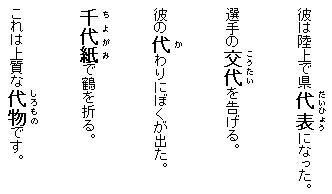 彼は陸上で県代表になった。
選手の交代を告げる。
彼の代わりにぼくが出た。
千代紙で鶴を折る。
これは上質な代物です。
だいひょう
こうたい
か
ちよがみ
しろもの